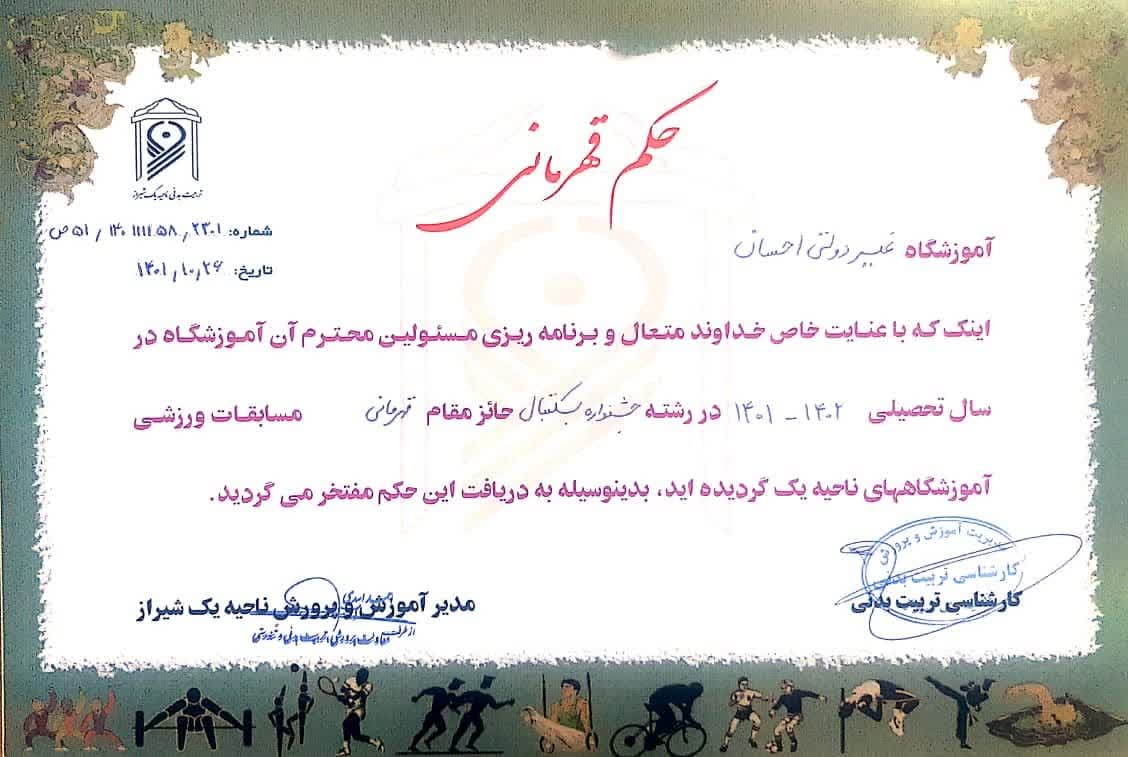 حکم قهرمانی
تربیت بدنی ناحیه یک شیراز
شماره: ۲۳۰۱ / ۱۴۰۱۱۱۴۵۸ / ۵۱ ص
تاریخ: ۱۴۰۱٫۱۰٫۲۶
آموزشگاه غیر دولتی احسان
اینک که با عنایت خاص خداوند متعال و برنامه ریزی مسئولین محترم آن آموزشگاه در
سال تحصیلی ۱۴۰۲ - ۱۴۰۱ در رشته جشنواره بسکتبال حائز مقام قهرمانی مسابقات ورزشی
آموزشگاههای ناحیه یک گردیده اید، بدینوسیله به دریافت این حکم مفتخر می گردید.
مدیریت آموزش و پرورش
کارشناسی تربیت بدنی
کارشناسی تربیت بدنی
مدیر آموزش و پرورش ناحیه یک شیراز
از طرف
معاونت پرورشی، تربیت بدنی و تندرستی